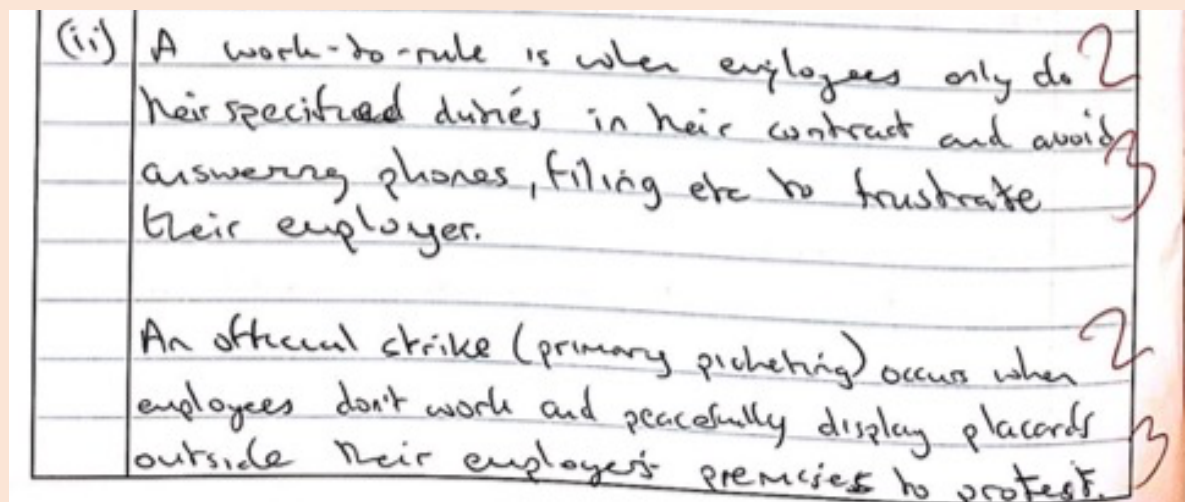 (ii) A work-to-rule is when employees only do 2
their specified duties in their contract and avoid
answering phones, filing etc to frustrate 3
their employer.
An official strike (primary picketing) occurs when 2
employees don't work and peacefully display placards
outside their employer's premises to protest. 3